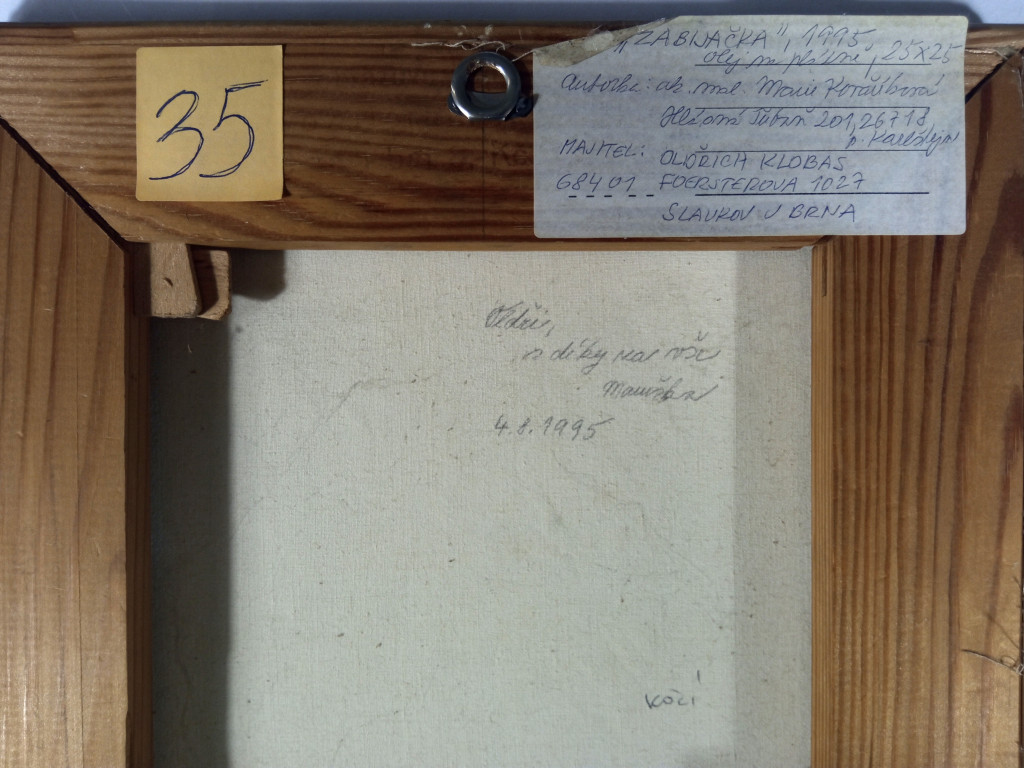 35
"ZABIJAČKA", 1995
olej na plátně, 25x25
Autorka: ak. mal. Marie
201, 26718,
p. Karlštejn
MAJITEL: OLDŘICH KLOBAS
68401 FOERSTEROVA 1027
SLAVKOV U BRNA
s díky za vše
4.8.1995
kočí